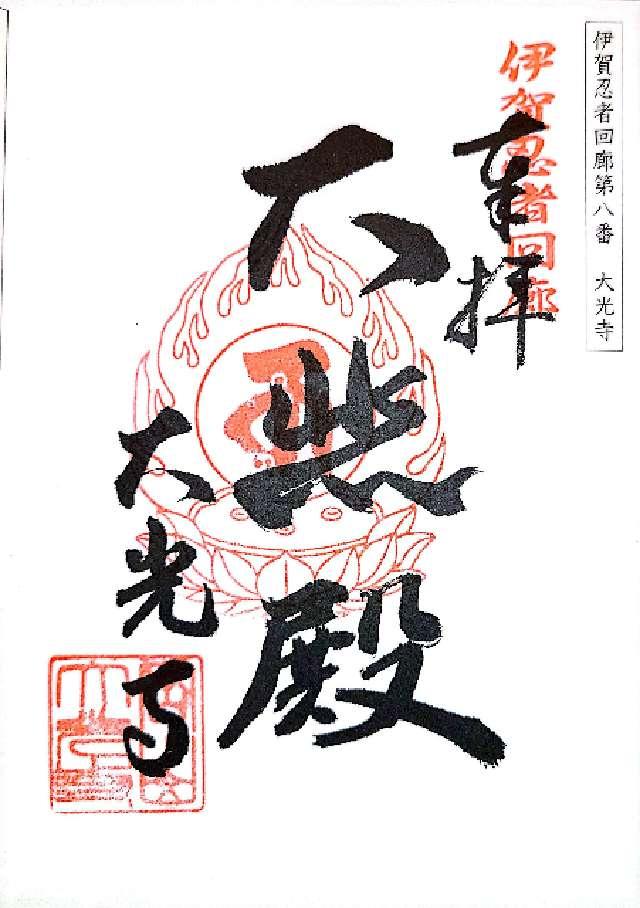 伊賀忍者回廊第八番　大光寺
伊賀忍者回廊
奉拝
大悲殿
大光寺